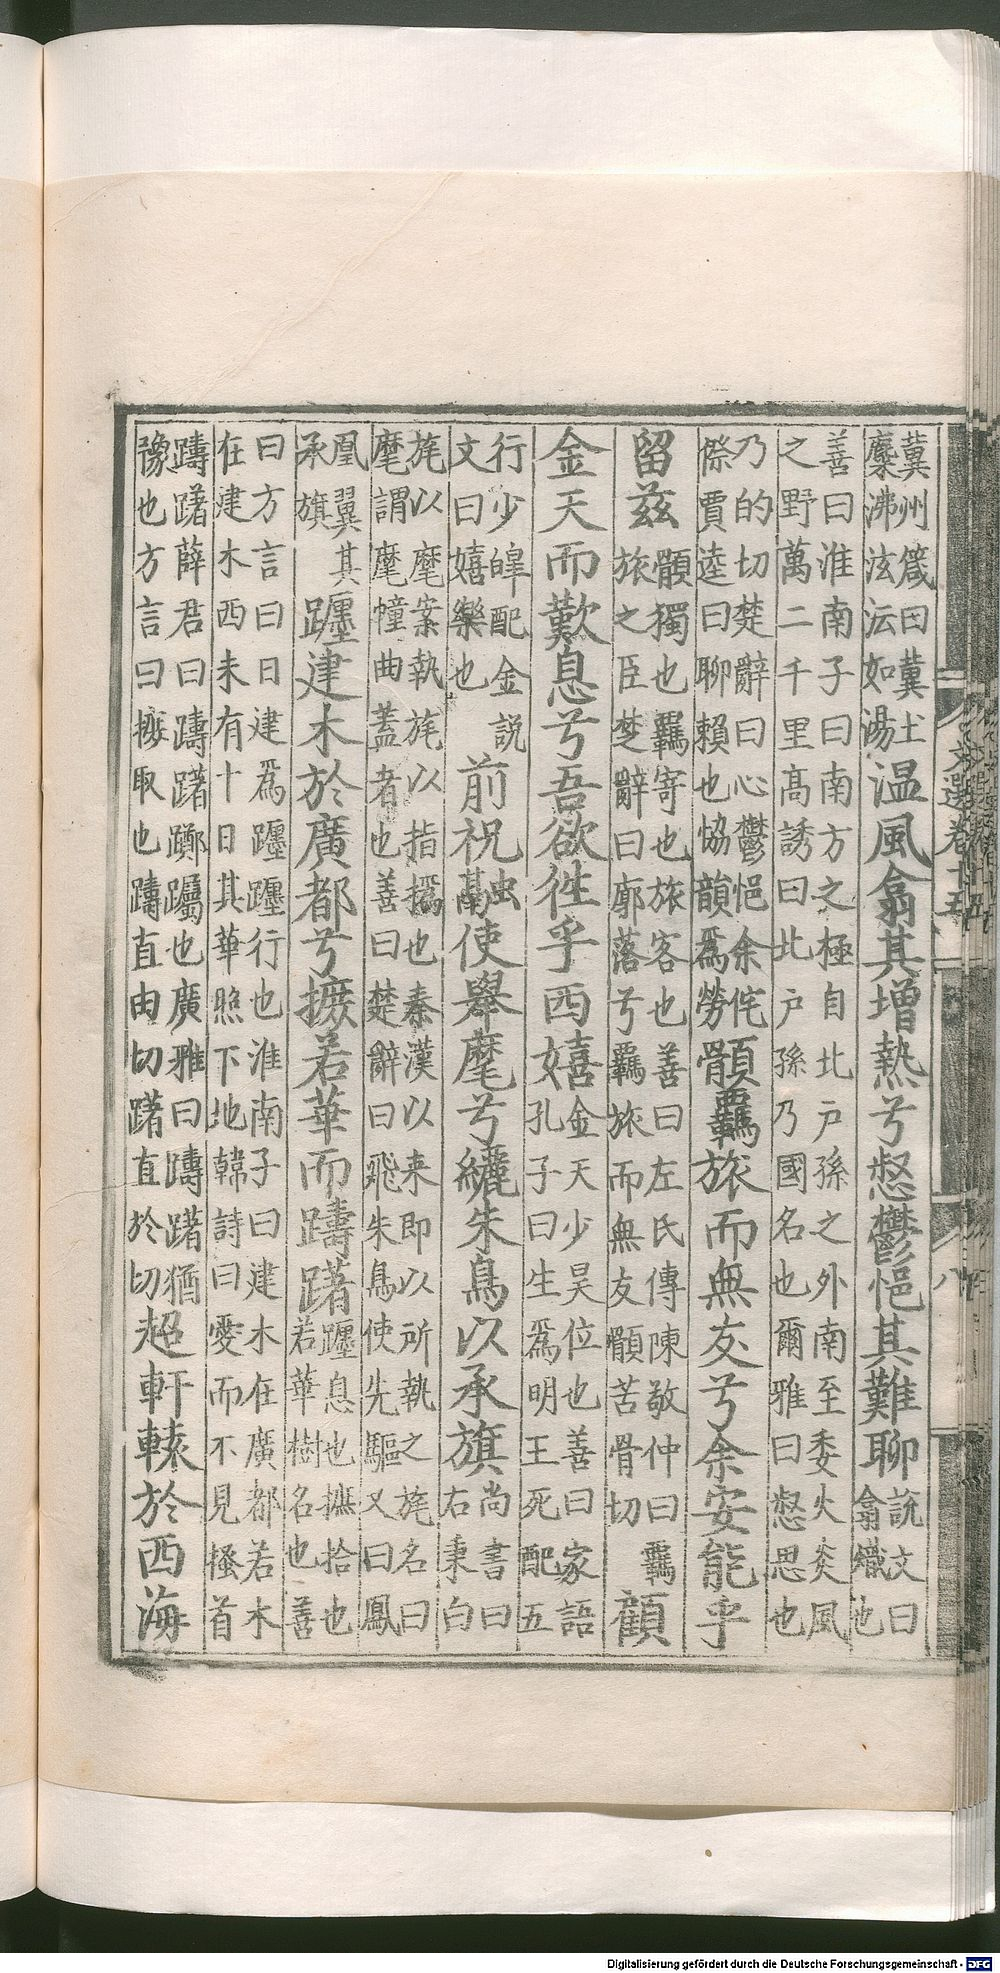 冀州箴曰冀土
麋沸泫沄如湯
温風翕其増熱兮惄鬱悒其難聊
説文曰
翕熾也
善曰淮南子曰南方之極自北户孫之外南至委火炎風
之野萬二千里高誘曰北户孫乃國名也爾雅曰惄思也
乃的切楚辭曰心鬱悒余侘
傺賈逵曰聊賴也恊韻爲勞
顝羈旅而無友兮余安能乎
留兹
顝獨也羈寄也旅客也善曰左氏傳陳敬仲曰羈
旅之臣楚辭曰廓落兮羈旅而無友顝苦骨切
顧
金天而歎息兮吾欲徃乎西嬉
金天少昊位也善曰家語
孔子曰生爲明王死配五
行少皥配金説
文曰嬉樂也
前祝融使舉麾兮纚朱鳥以承旗
尚書曰
右秉白
旄以麾案執旄以指撝也秦漢以来即以所執之旄名曰
麾謂麾幢曲蓋者也善曰楚辭曰飛朱鳥使先驅又曰鳳
凰翼其
承旗
躔建木於廣都兮摭若華而躊躇
躔息也摭拾也
若華樹名也善
曰方言曰日建爲躔躔行也淮南子曰建木在廣都若木
在建木西末有十日其華照下地韓詩曰愛而不見搔首
躊躇薛君曰躊躇躑躅也廣雅曰躊躇猶
豫也方言曰摭取也躊直由切躇直於切
超軒轅於西海
文選卷十五
八
Digitalisierung gefördert durch die Deutsche Forschungsgemeinschaft - DFG